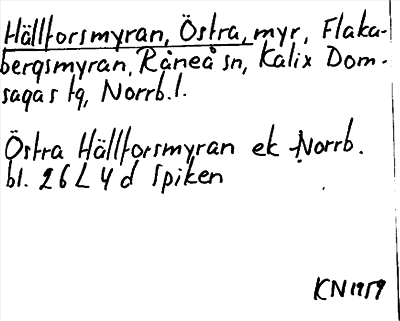 Hällforsmyran, Östra, myr, Flaka-
bergsmyran, Råneå sn, Kalix Dom-
sagas tg, Norrb.l.
Östra Hällforsmyran ek Norrb.
bl. 26 L 4 d Spiken
KN 1959